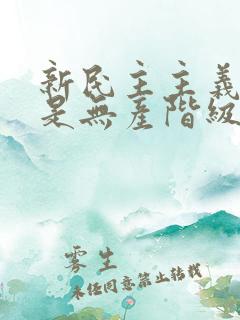 新民主主義
是無產階級
雾生
未经同意禁止转载